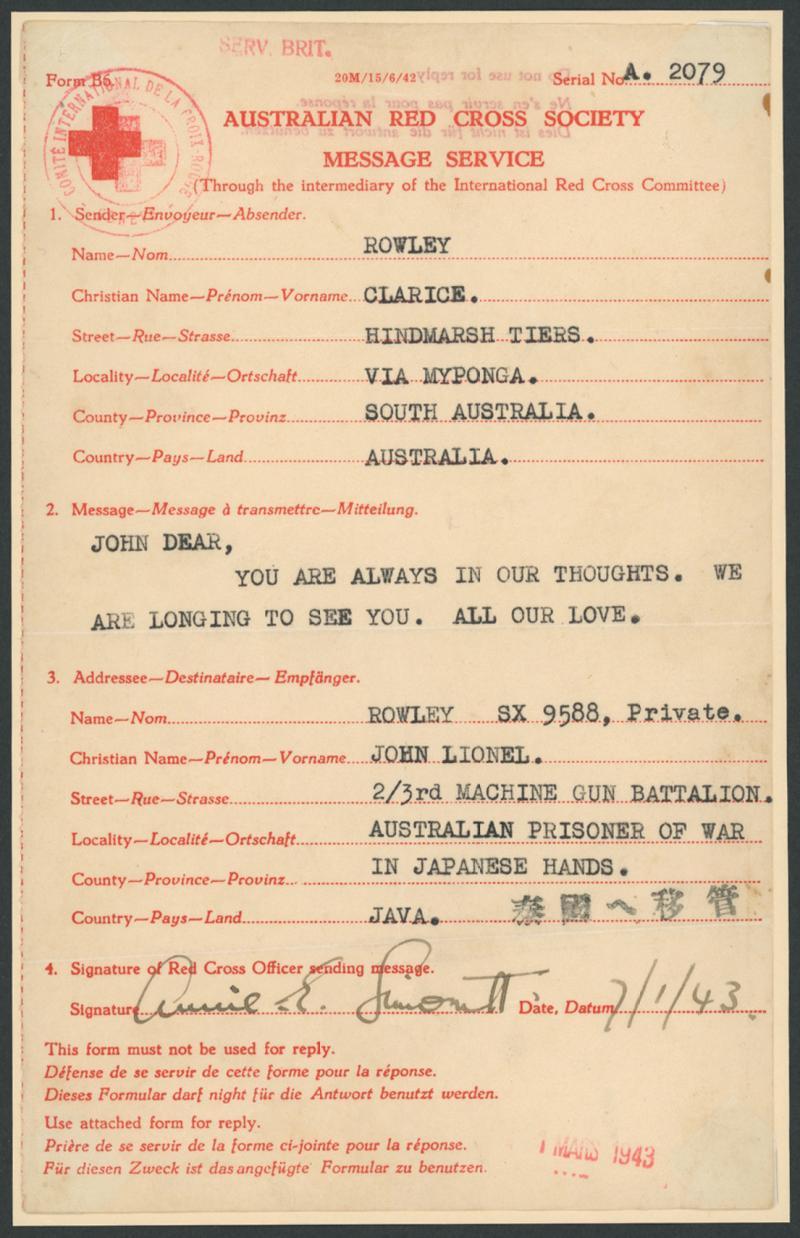 SERV. BRIT.
Form B6. 20M/15/6/42 Serial No. A. 2079
Do not use for reply
Ne s'en servir pas pour la réponse.
Dies ist nicht für die antwort zu benutzen.
COMITÉ INTERNATIONAL DE LA CROIX-ROUGE
AUSTRALIAN RED CROSS SOCIETY
MESSAGE SERVICE
(Through the intermediary of the International Red Cross Committee)
1. Sender—Envoyeur—Absender.
Name—Nom ROWLEY
Christian Name—Prénom—Vorname CLARICE.
Street—Rue—Strasse HINDMARSH TIERS.
Locality—Localité—Ortschaft VIA MYPONGA.
County—Province—Provinz SOUTH AUSTRALIA.
Country—Pays—Land AUSTRALIA.
2. Message—Message à transmettre—Mitteilung.
JOHN DEAR,
YOU ARE ALWAYS IN OUR THOUGHTS. WE
ARE LONGING TO SEE YOU. ALL OUR LOVE.
3. Addressee—Destinataire—Empfänger.
Name—Nom ROWLEY SX 9588, Private.
Christian Name—Prénom—Vorname JOHN LIONEL.
Street—Rue—Strasse 2/3rd MACHINE GUN BATTALION.
Locality—Localité—Ortschaft AUSTRALIAN PRISONER OF WAR
County—Province—Provinz IN JAPANESE HANDS.
Country—Pays—Land JAVA. 泰國へ移管
4. Signature of Red Cross Officer sending message.
Signature Annie E. Date, Datum 7/1/43.
This form must not be used for reply.
Défense de se servir de cette forme pour la réponse.
Dieses Formular darf night für die Antwort benutzt werden.
Use attached form for reply.
Prière de se servir de la forme ci-jointe pour la réponse.
Für diesen Zweck ist das angefügte Formular zu benutzen.
1 MARS 1943